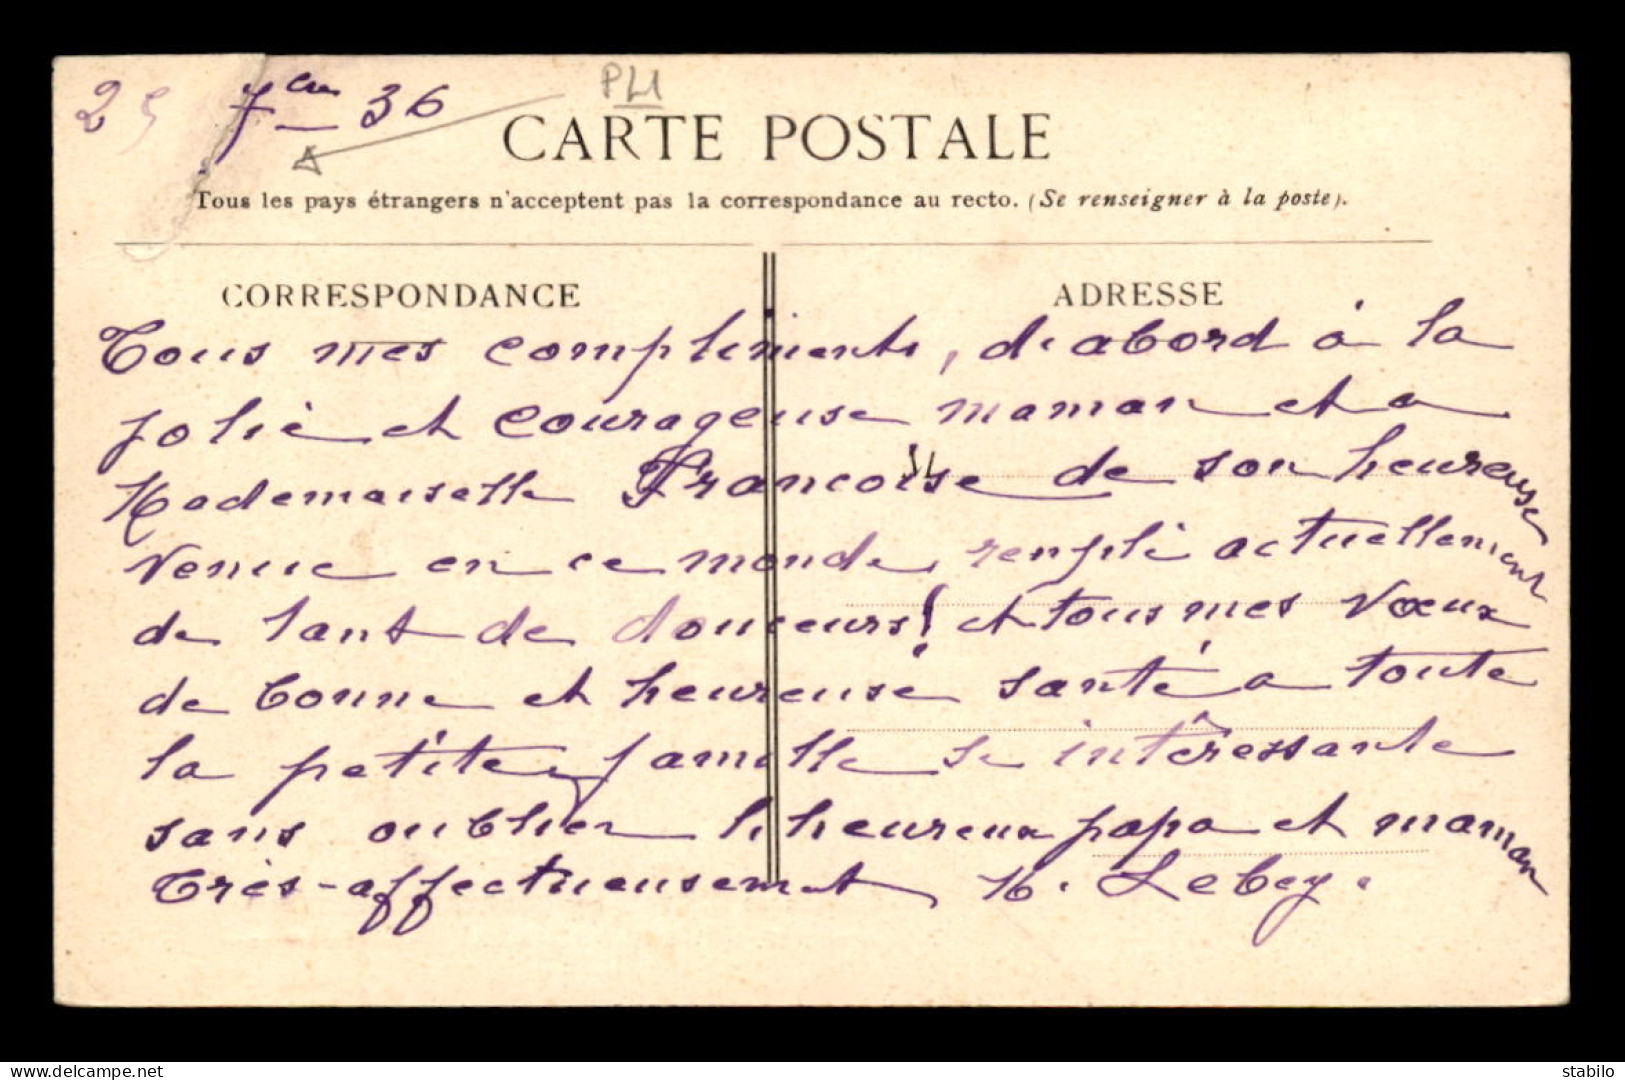 25 7bre 36
PLI
CARTE POSTALE
Tous les pays étrangers n'acceptent pas la correspondance au recto. (Se renseigner à la poste).
CORRESPONDANCE
ADRESSE
Tous mes compliments, d'abord à la
jolie et courageuse maman et a
Mademoiselle Francoise de son heureuse
venue en ce monde, rempli actuellement
de tant de douceurs! et tous mes vœux
de bonne et heureuse santé a toute
la petite famille si intéressante
sans oublier l'heureux papa et maman
Très-affectueusement M. Lebey.
delcampe.net
stabilo